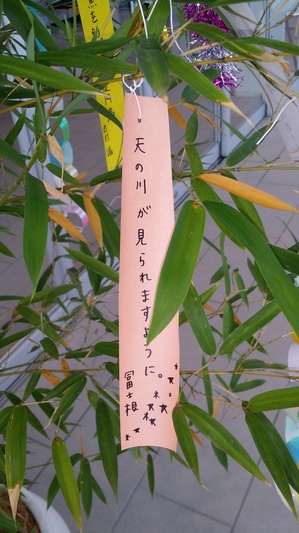 天の川が見られますように。
冨士根